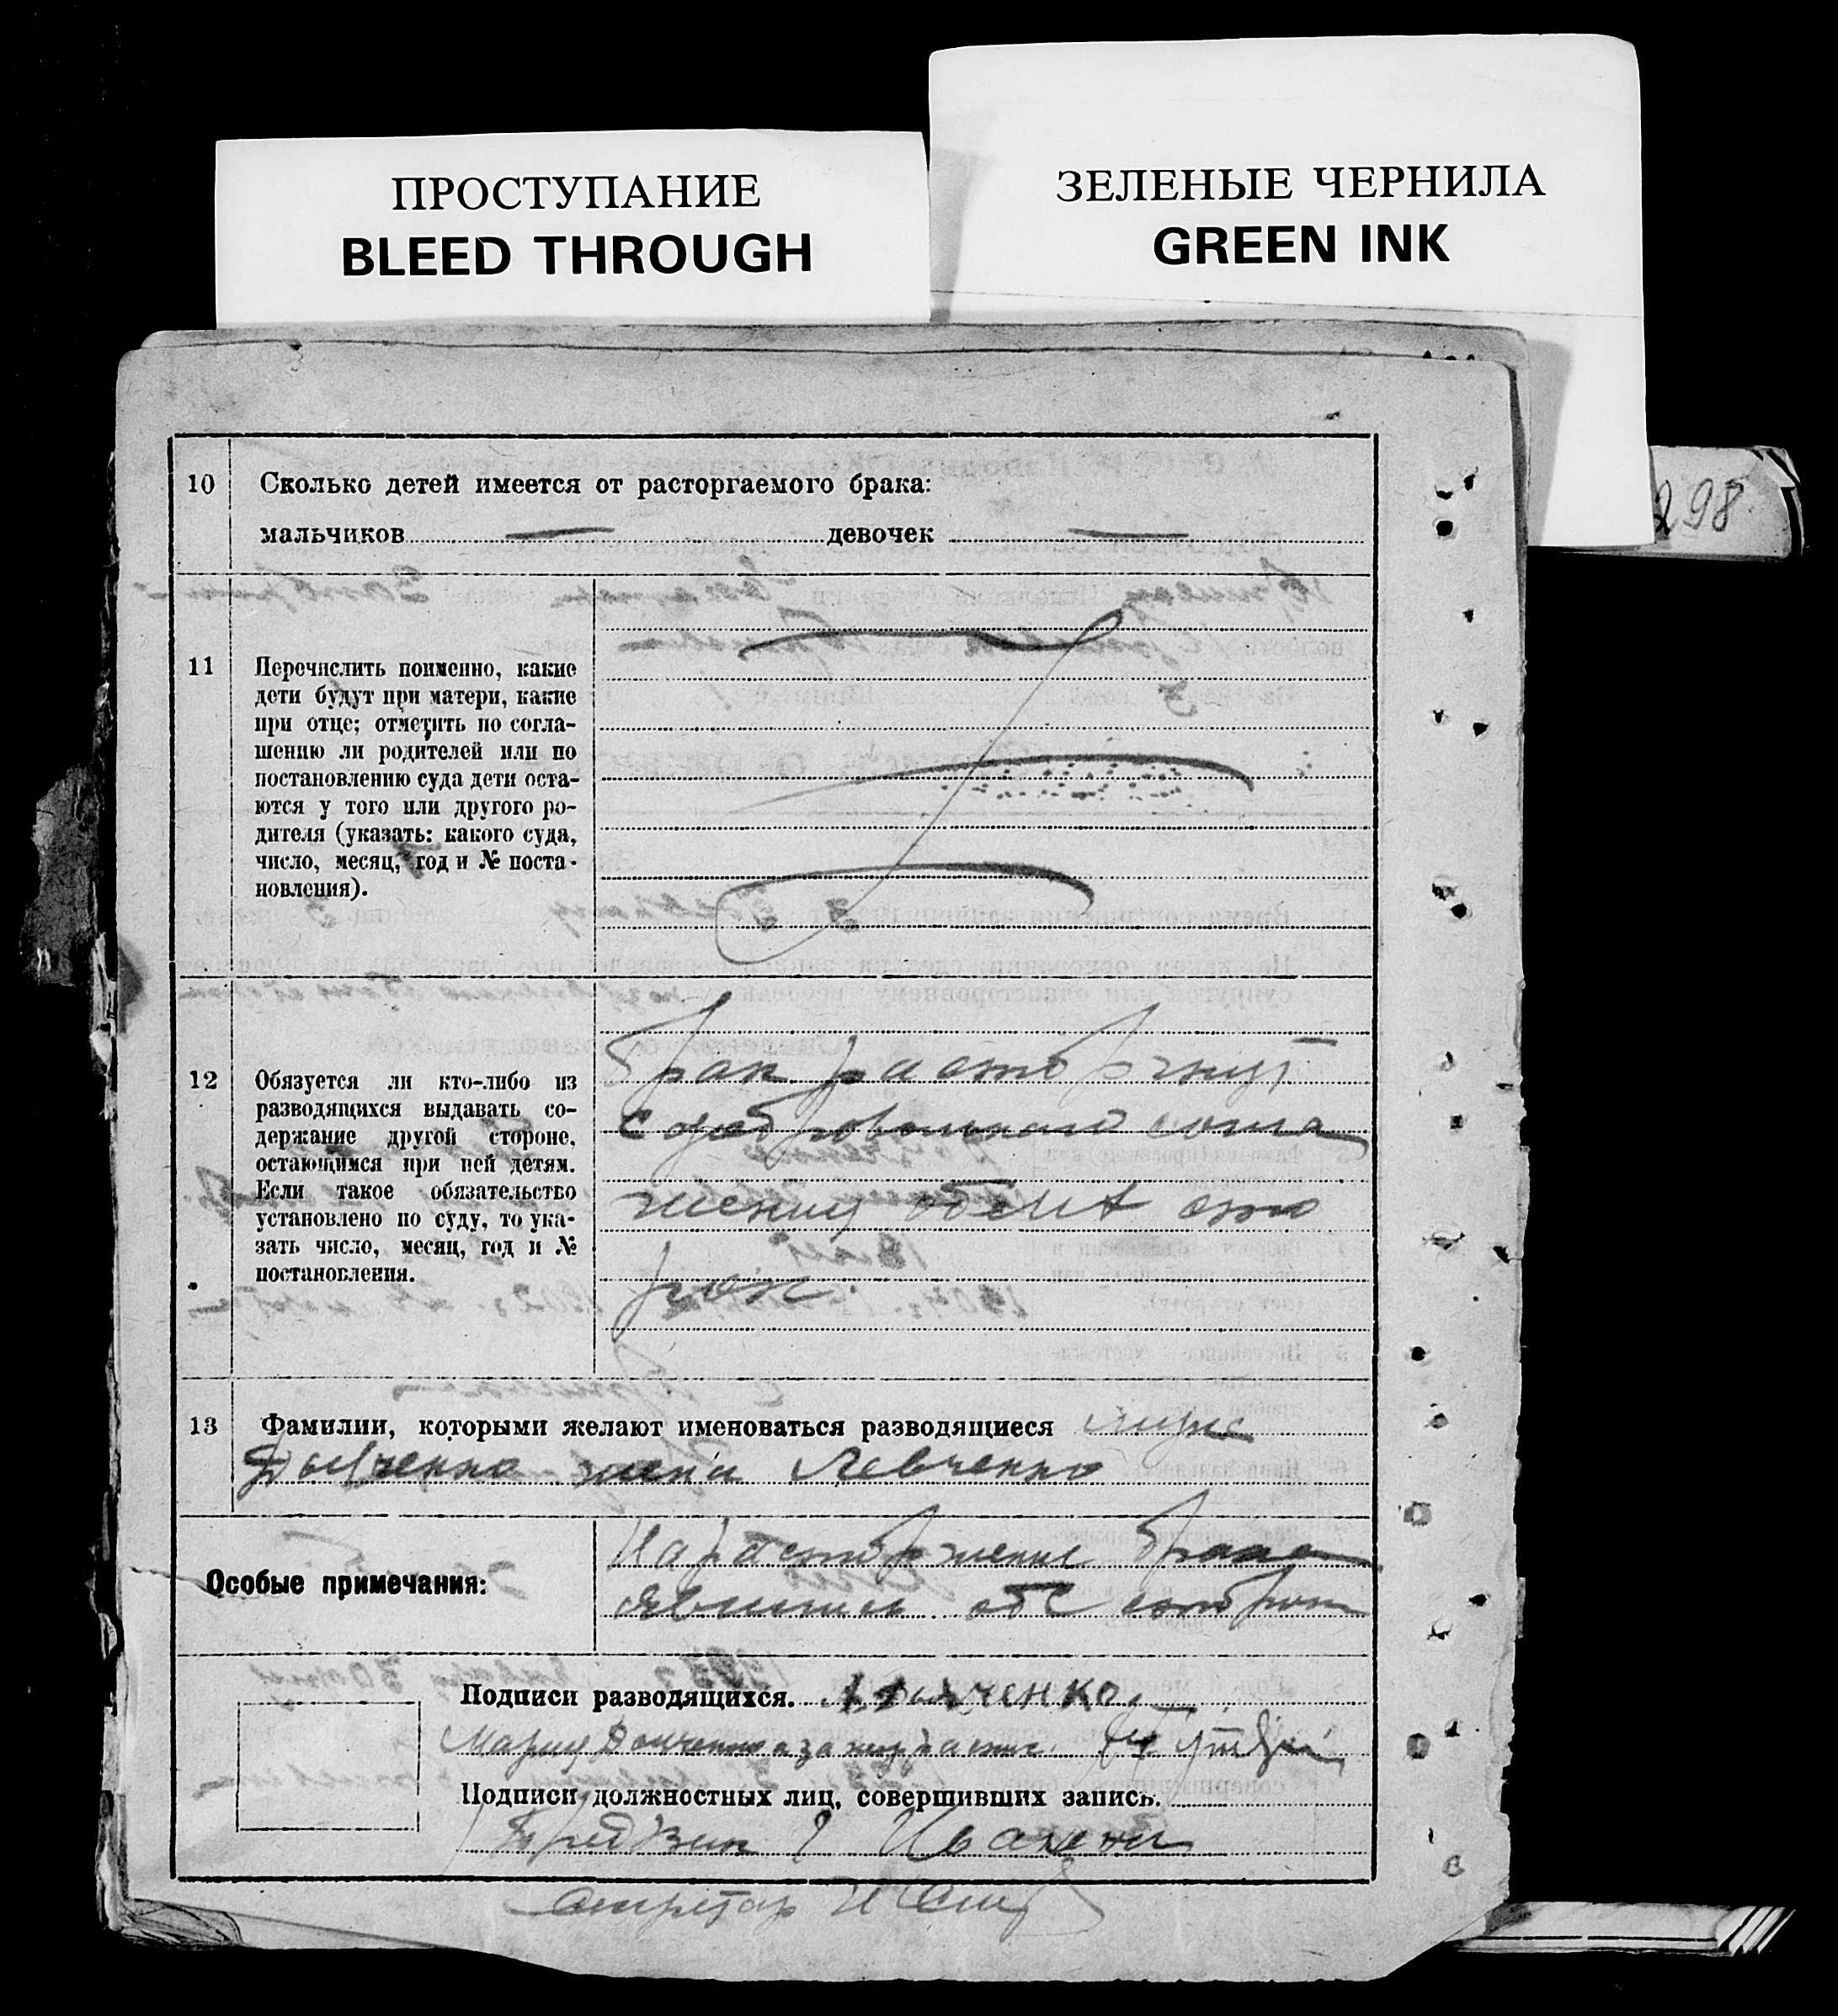 ПРОСТУПАНИЕ
BLEED THROUGH
ЗЕЛЕНЫЕ ЧЕРНИЛА
GREEN INK
298
10 Сколько детей имеется от расторгаемого брака:
мальчиков — девочек —
11 Перечислить поименно, какие
дети будут при матери, какие
при отце; отметить по согла-
шению ли родителей или по
постановлению суда дети оста-
ются у того или другого ро-
дителя (указать: какого суда,
число, месяц, год и № поста-
новления).
12 Обязуется ли кто-либо из
разводящихся выдавать со-
держание другой стороне,
остающимся при ней детям.
Если такое обязательство
установлено по суду, то ука-
зать число, месяц, год и №
постановления.
Брак расторгнут
с добровольного согла
шения обеих сто
рон.
13 Фамилии, которыми желают именоваться разводящиеся
жена Левченко
Особые примечания:
На расторжение брака
явились обе сторон
Подписи разводящихся.
Мария
Подписи должностных лиц, совершивших запись.
Секретар